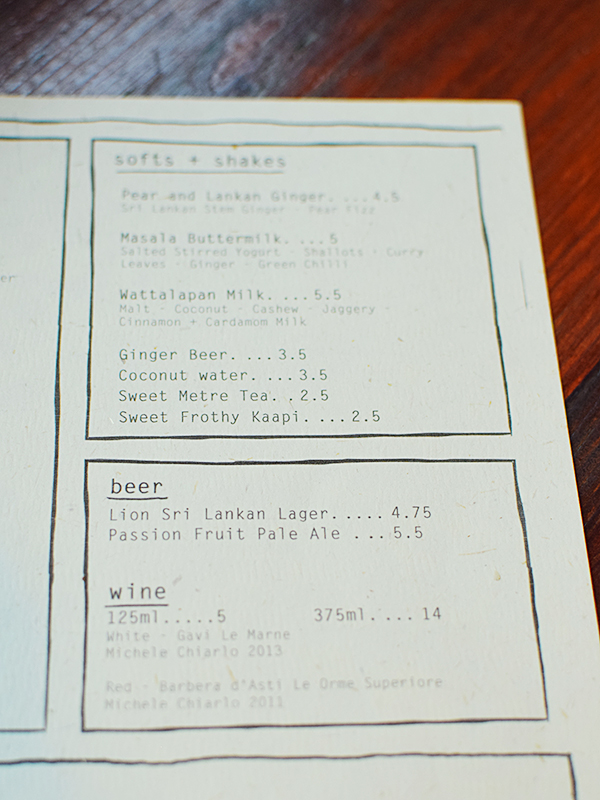 er
softs + shakes
Pear and Lankan Ginger. ... 4.5
Sri Lankan Stem Ginger - Pear Fizz
Masala Buttermilk. ... 5
Salted Stirred Yogurt - Shallots - Curry
Leaves - Ginger - Green Chilli
Wattalapan Milk. ... 5.5
Malt - Coconut - Cashew - Jaggery -
Cinnamon + Cardamom Milk
Ginger Beer. ... 3.5
Coconut water. ... 3.5
Sweet Metre Tea. . 2.5
Sweet Frothy Kaapi. ... 2.5
beer
Lion Sri Lankan Lager. .... 4.75
Passion Fruit Pale Ale ... 5.5
wine
125ml.....5 375ml. ... 14
White - Gavi Le Marne
Michele Chiarlo 2013
Red - Barbera d'Asti Le Orme Superiore
Michele Chiarlo 2011